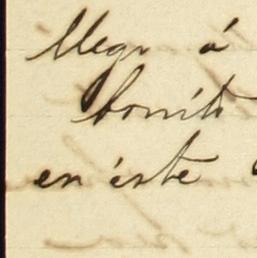 Llego á
bonito
en éste